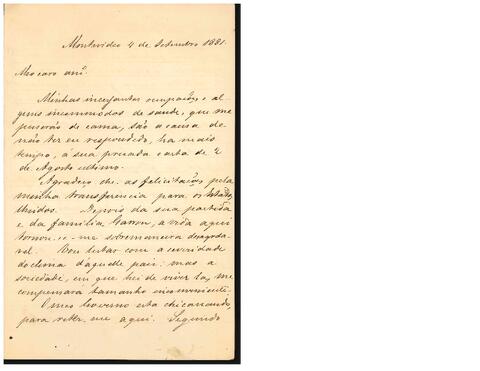 Montevideo 4 de Setembro 1881.
Meu caro amº.
Minhas incessantes occupações e al
guns incommodos de saude, que me
puserão de cama, são a causa de
não ter eu respondido, ha mais
tempo, á sua presada carta de 2
de Agosto ultimo.
Agradeço-lhe as felicitações pela
minha transferencia para os Estados
Unidos. Depois da sua partida
e da familia a vida aqui
tornou-se-me sobremaneira desagrada
vel. Vou luctar com a severidade
do clima d'aquelle paiz; mas a
sociedade, em que hei de viver lá, me
compensará tamanho
O meu Governo está chicanando,
para reter-me aqui. Segundo